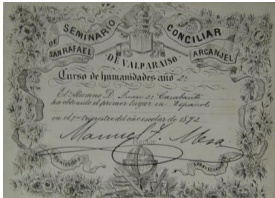 SEMINARIO CONCILIAR
DE SAN RAFAEL ARCANJEL
DE VALPARAISO
Curso de humanidades año 2º
El Alumno D. Juan
ha obtenido el primer lugar en Español
en el 1er trimestre del año escolar de 1892
Manuel